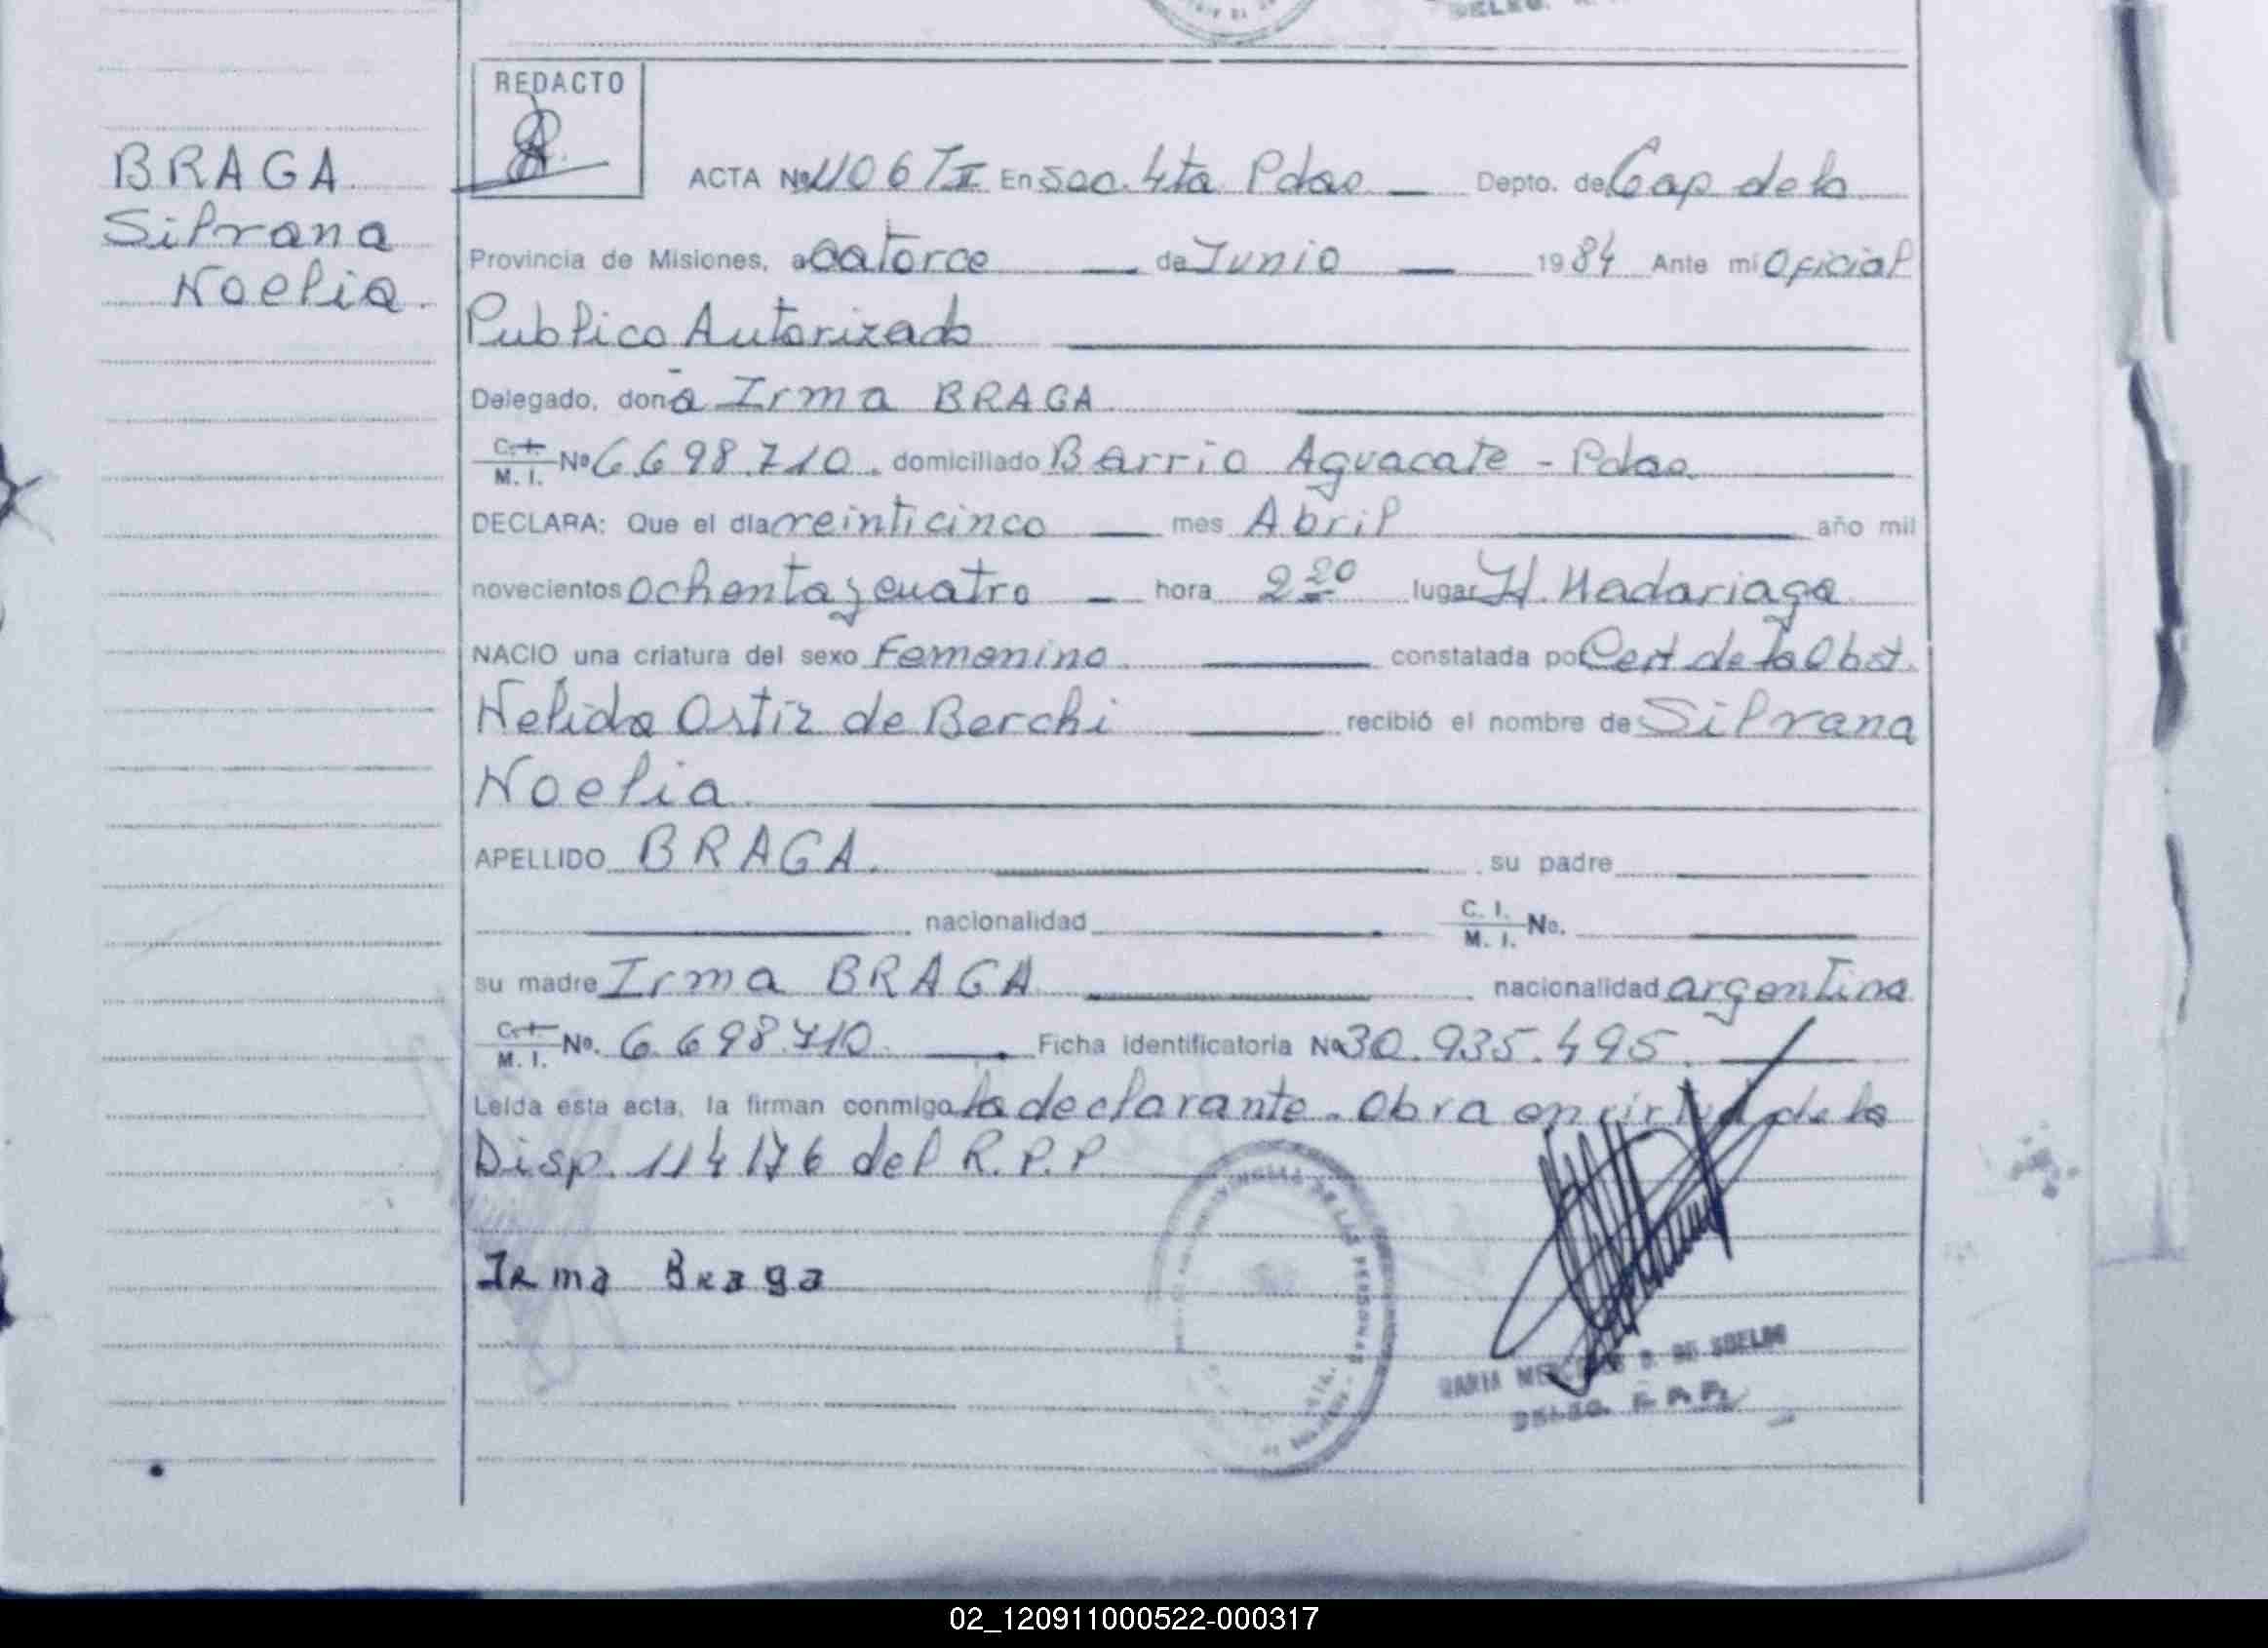 DELEG.
REDACTO
BRAGA
Silvana
Noelia.
ACTA Nº 1106 T II En Sec. 4ta Pdas. — Depto. de Cap de la
Provincia de Misiones, a catorce — de Junio — 1984 Ante mi Oficial
Publico Autorizado
Delegado, doña Irma BRAGA
C. I.
M. I. Nº 6.698.710. domiciliado Barrio Aguacate - Pdas.
DECLARA: Que el día veinticinco — mes Abril año mil
novecientos ochenta y cuatro — hora 2 20 lugar H. Madariaga
NACIO una criatura del sexo Femenino constatada por Cert de la Obst.
Nelida Ortiz de Berchi recibió el nombre de Silvana
Noelia.
APELLIDO BRAGA. su padre
nacionalidad C. I.
M. I. No.
su madre Irma BRAGA nacionalidad argentina
C. I.
M. I. No. 6.698.710. Ficha Identificatoria Nº 30.935.495.
Leída esta acta, la firman conmigo la declarante. Obra en virtud de la
Disp. 114/76 del R.P.P.
Irma Braga
DE LAS PERSONAS
MARIA
DELEG. R. P. P.
02_120911000522-000317